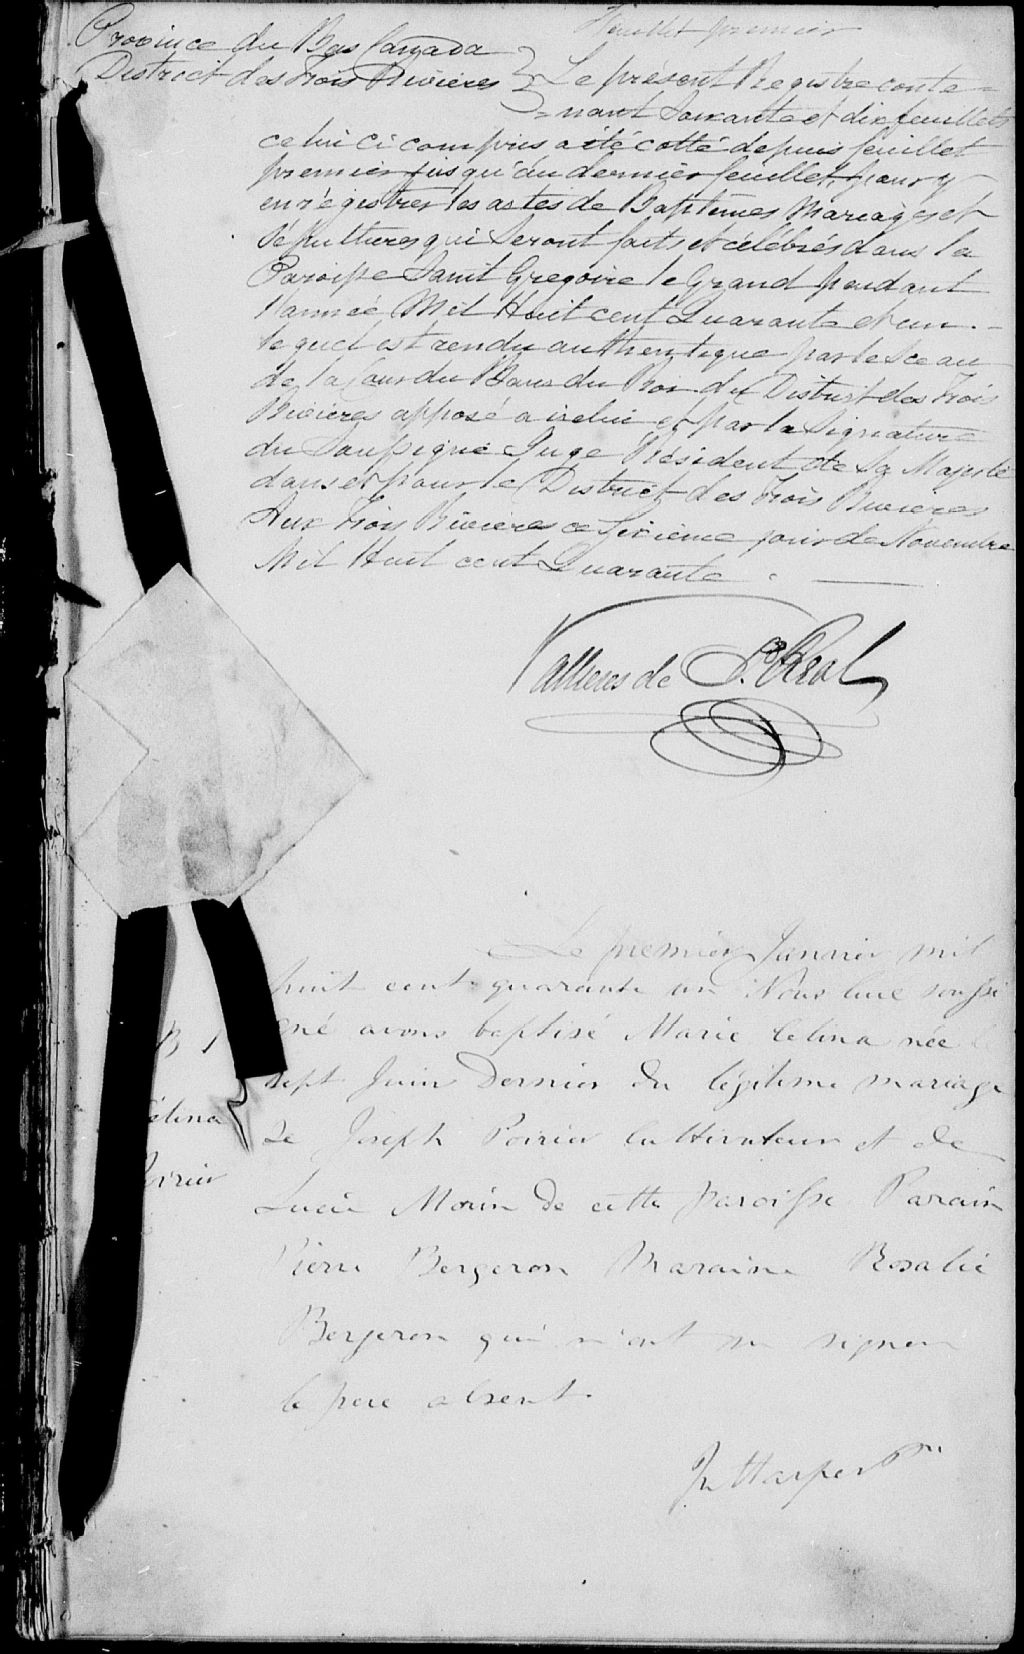 Feuillet premier
Province du Bas Canada
District des Trois Rivieres } Le présent Registre conte=
=nant Soixante et dix feuillets
celui ci compris a été cotté depuis feuillet
premier jusqu'au dernier feuillet, pour y
enrégistrer les actes de Baptêmes Mariages et
Sépultures qui Seront faits et célébrés dans la
Paroisse Saint Gregoire le Grand pendant
l'année Mil Huit cent Quarante et un. –
lequel est rendu authentique par le Sceau
de la Cour du Banc du Roi du District des Trois
Rivières apposé a icelui et par la Signature
du Soussigné Juge Résident de Sa Majesté
dans et pour le District des Trois Rivieres
Aux Trois Rivières ce Sixième jour de Novembre
Mil Huit cent Quarante . —
Vallieres de St. Real
Le premier Janvier mil
huit cent quarante un Nous Curé soussi
gné avons baptisé Marie Celina née le
B 1
sept Juin Dernier du légitime mariage
élina
de Joseph Poirier Cultivateur et de
oirier
Lucie Morin de cette paroisse Parain
Pierre Bergeron Maraine Rosalie
Bergeron qui n'ont su signer
le pere absent.
Jn Harper Ptre